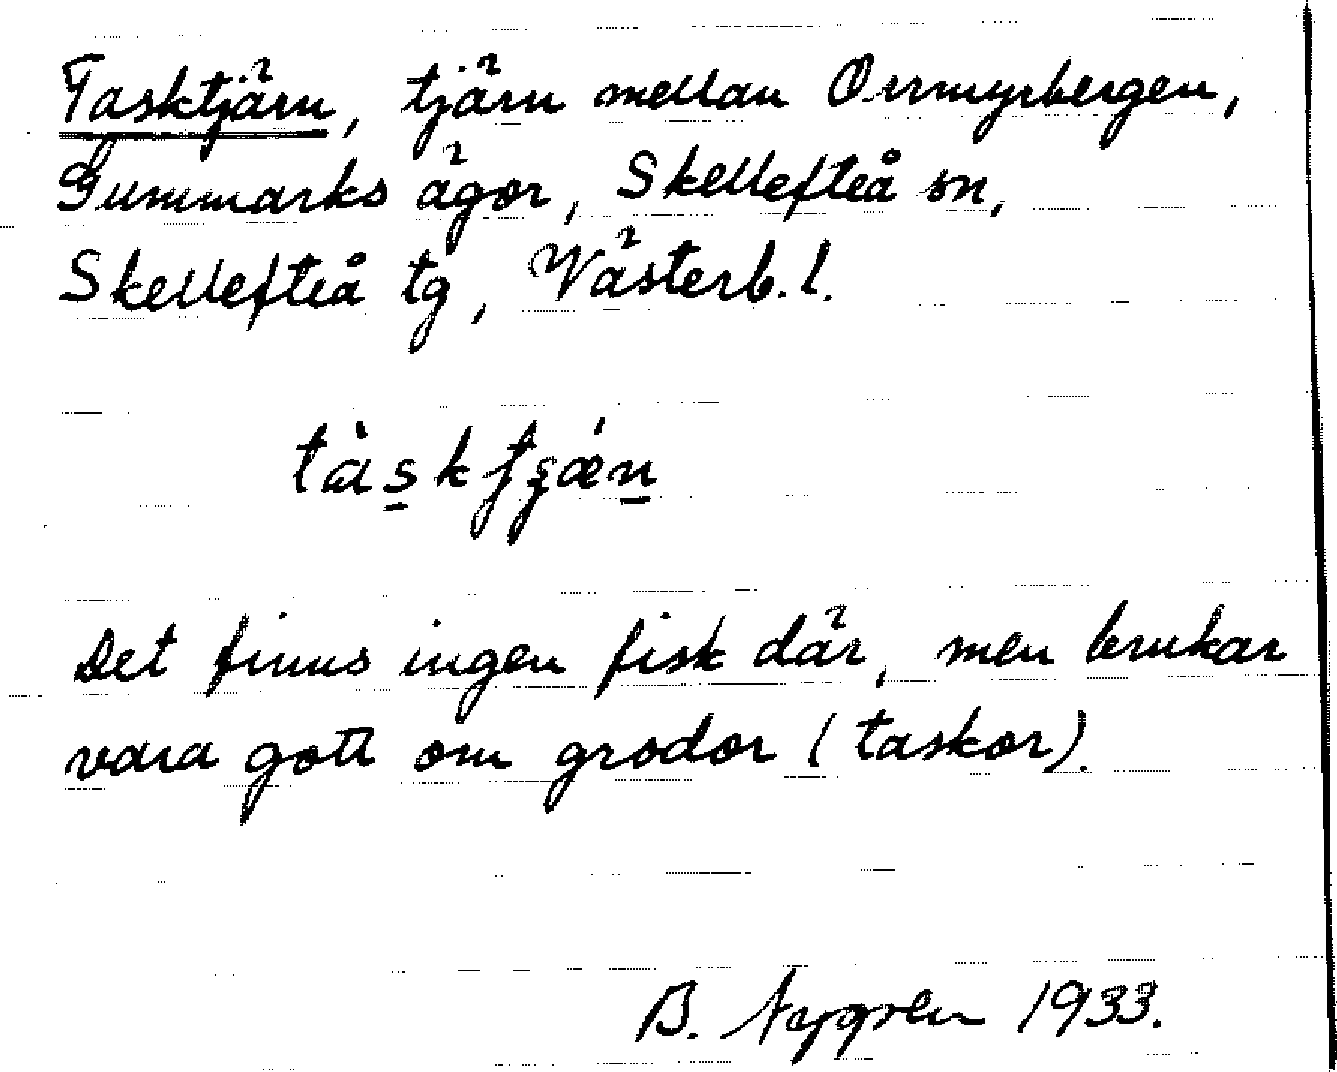 Tasktjärn, tjärn mellan Orrmyrbergen,
Gummarks ägor, Skellefteå sn,
Skellefteå tg, Västerb. l.
Det finns ingen fisk där, men brukar
vara gott om grodor (taskor).
B. Nygren 1933.